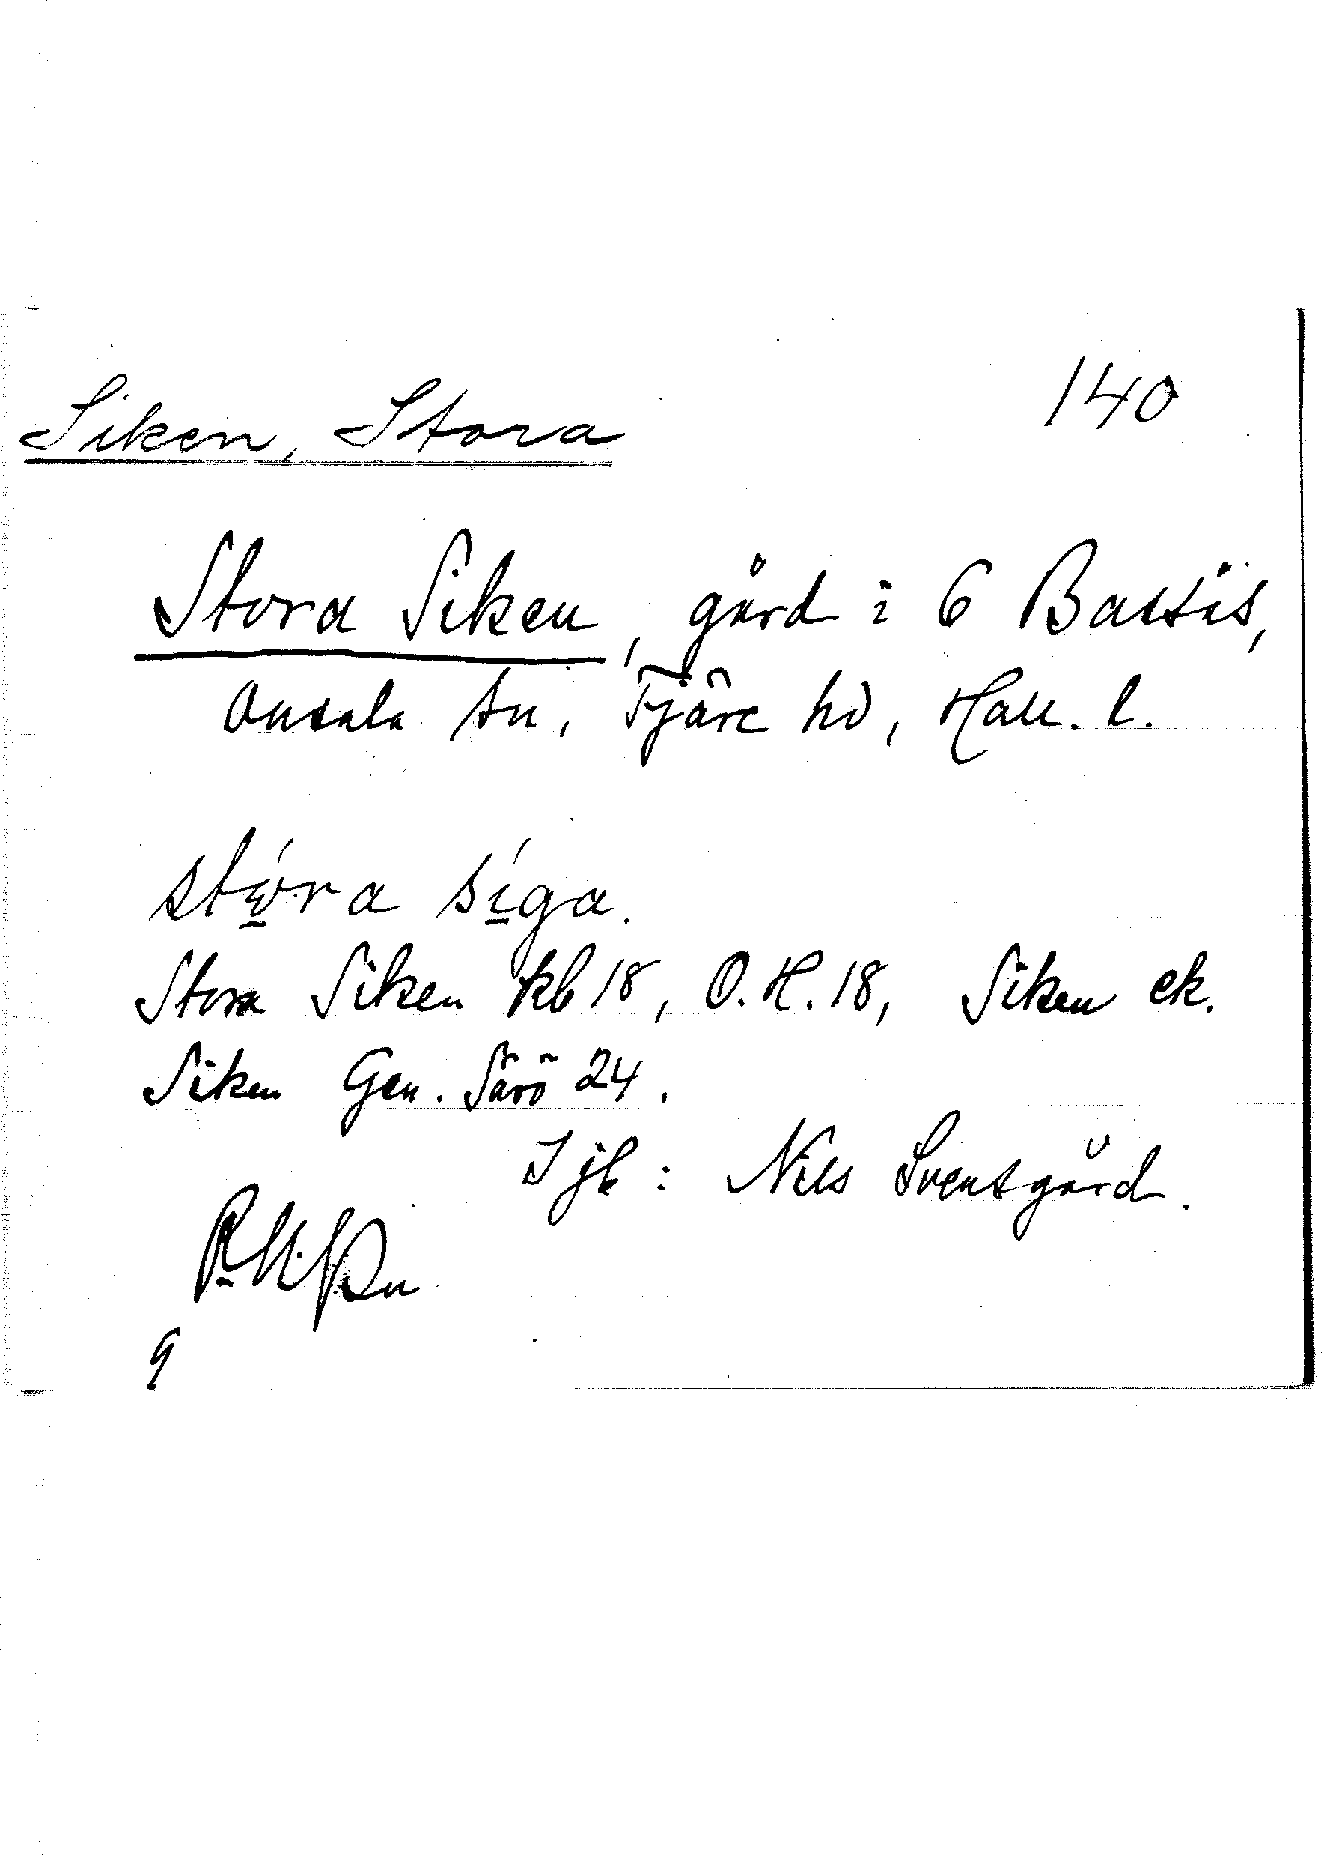 Siken, Stora 140
Stora Siken, gård i 6 Bassås,
Onsala sn, Fjäre hd, Hall. l.
stώra síga.
Stora Siken kb 18, O.H. 18, Siken ek.
Siken Gen. Särö 24.
I jb: Nils Svensgård.
9